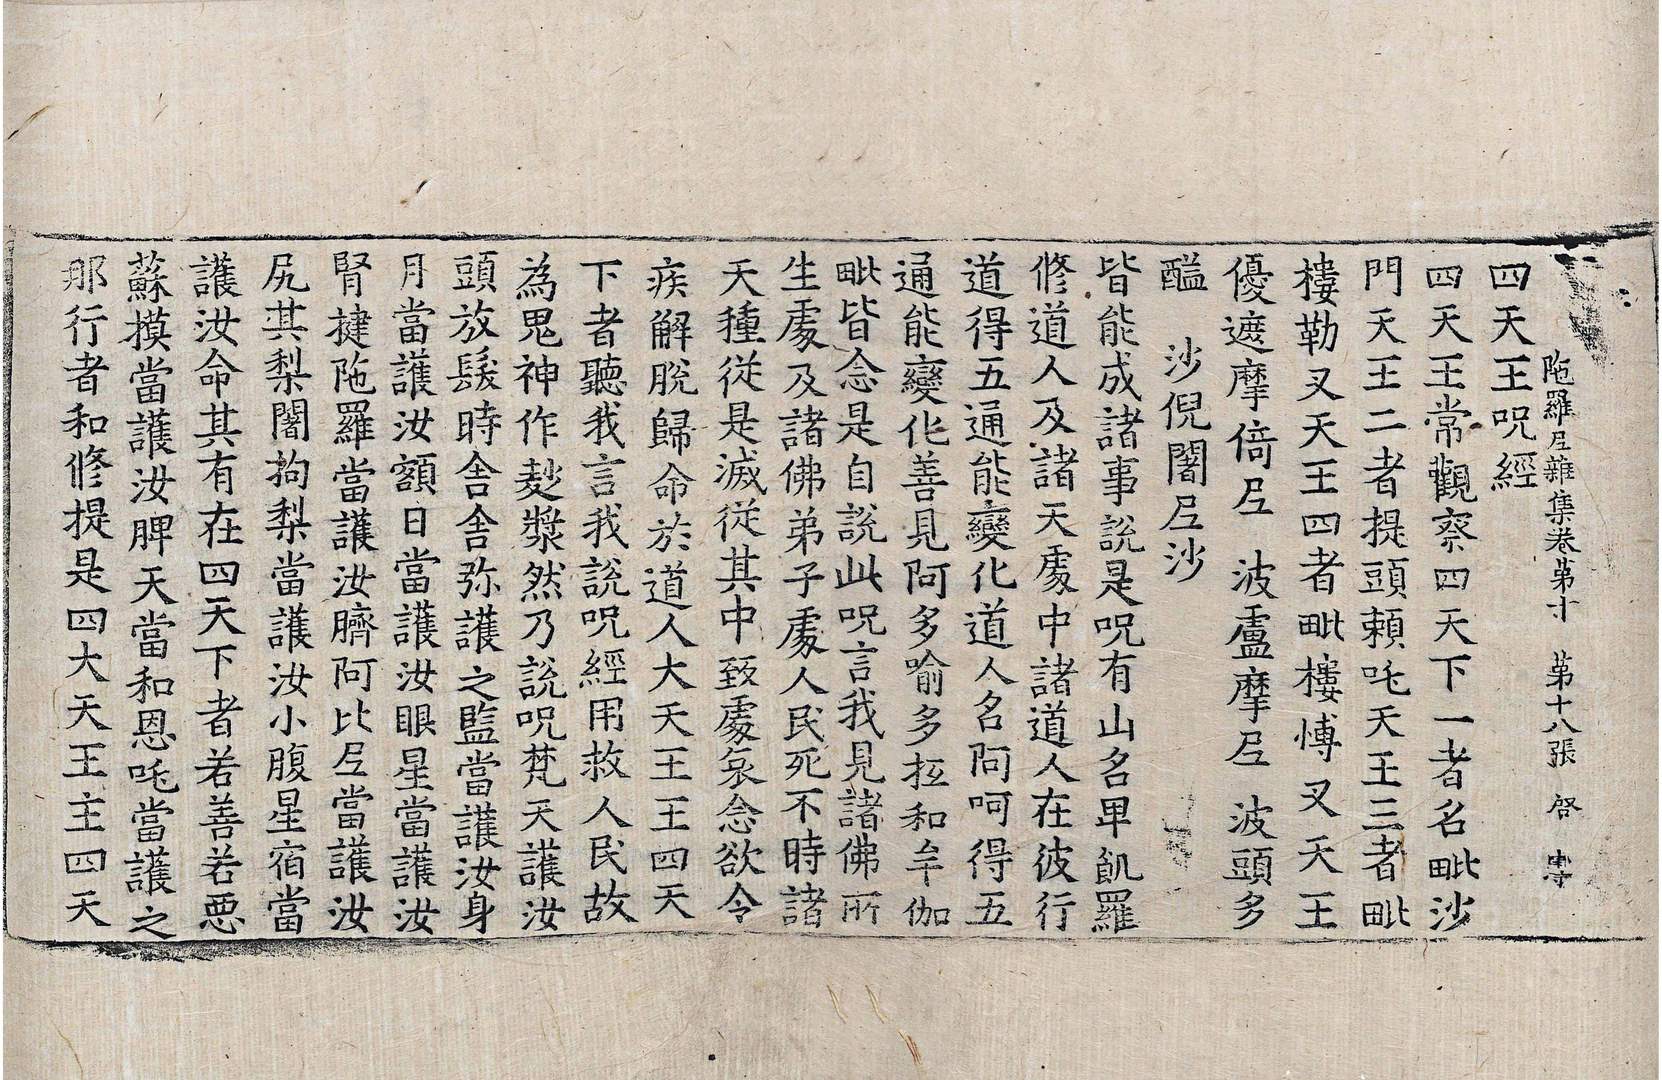 陁羅尼雜集卷第十　第十八張　啓　専
四天王呪經
四天王常觀察四天下一者名毗沙
門天王二者提頭頼吒天王三者毗
樓勒叉天王四者毗樓博叉天王
優遮摩倍尼　波盧摩尼　波頭多
醯　沙倪闍尼沙
皆能成諸事說是呪有山名畢飢羅
修道人及諸天處中諸道人在彼行
道得五通能變化道人名阿呵得五
通能變化善見阿多喻多拓和牟伽
毗皆念是自說此呪言我見諸佛所
生處及諸佛弟子處人民死不時諸
天種從是滅從其中致處哀念欲令
疾解脫歸命於道人大天王王四天
下者聽我言我說呪經用救人民故
為鬼神作麨漿然乃說呪梵天護汝
頭放髮時舎舎弥護之監當護汝身
月當護汝額日當護汝眼星當護汝
腎揵陁羅當護汝臍阿比尼當護汝
尻其梨闍拘梨當護汝小腹星宿當
護汝命其有在四天下者若善若惡
蘇摸當護汝脾天當和恩吒當護之
那行者和修提是四大天王主四天